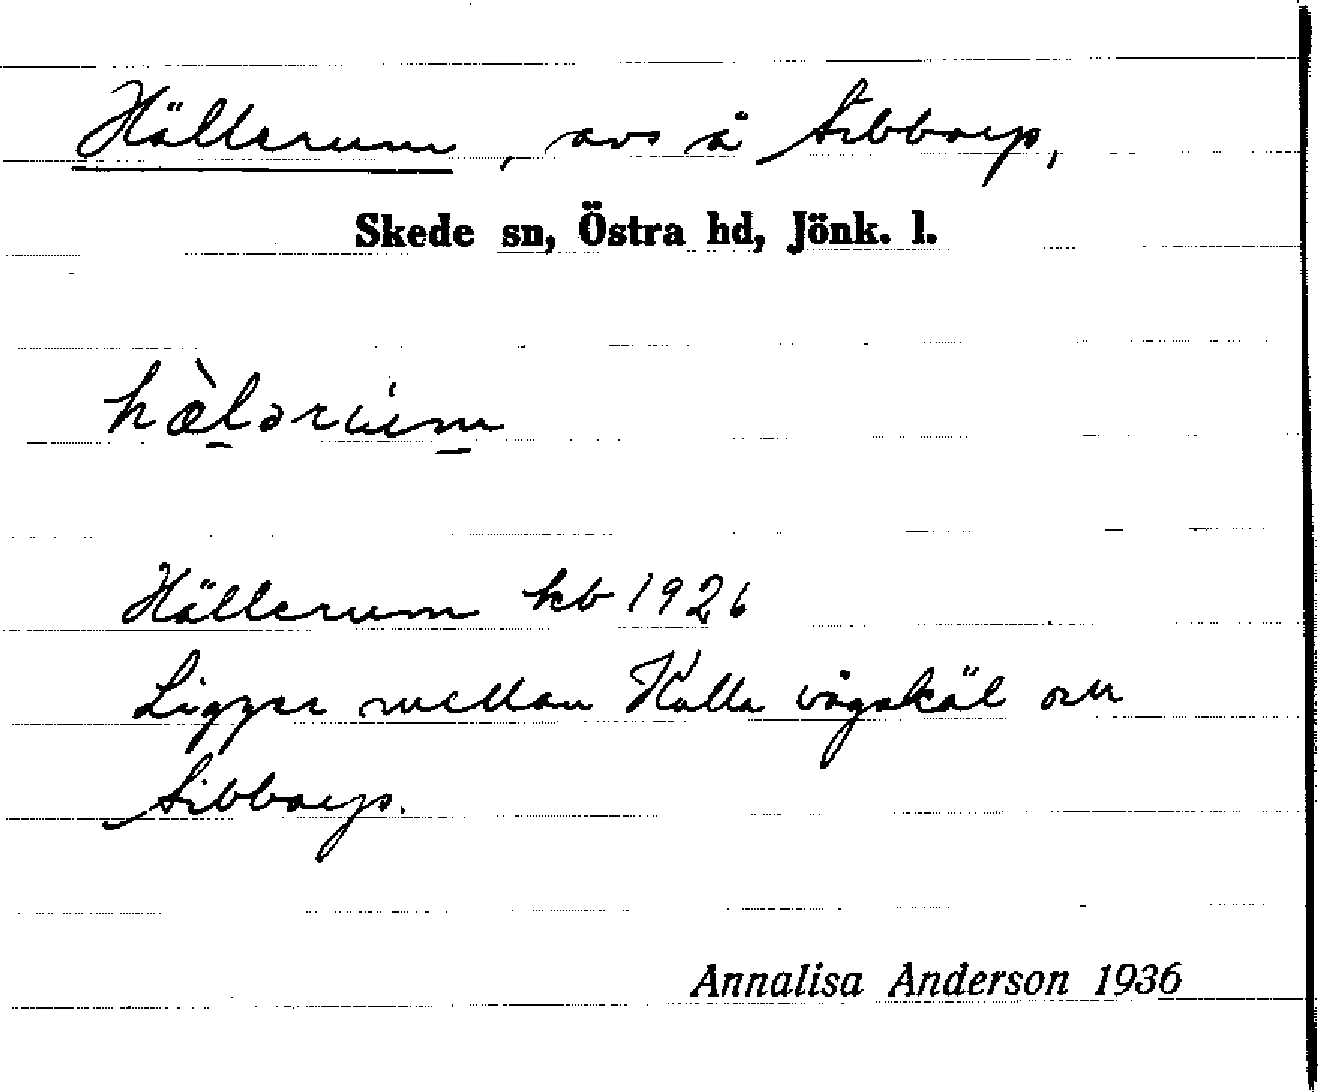 Hällerum, avs å Sibbarp,
Skede sn, Östra hd, Jönk. l.
hæ̀lərùm
Hällerum kb 1926
Ligger mellan Kalla vägskäl och
Sibbarp.
Annalisa Anderson 1936